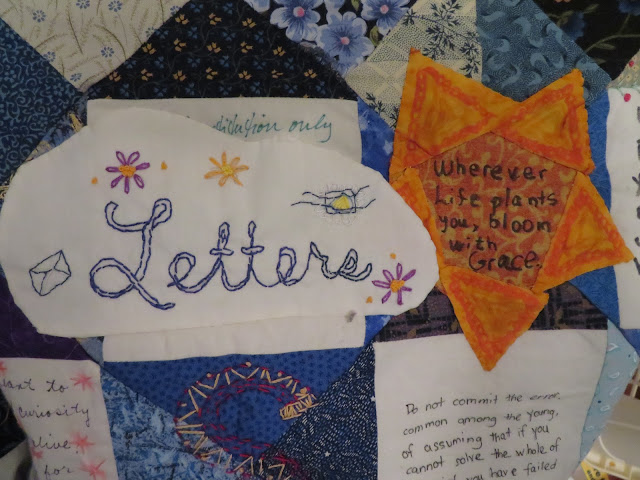 only
Letters
Wherever
Life plants
you, bloom
with
Grace.
to
curiosity
for
Do not commit the error,
common among the young,
of assuming that if you
cannot solve the whole of
you have failed